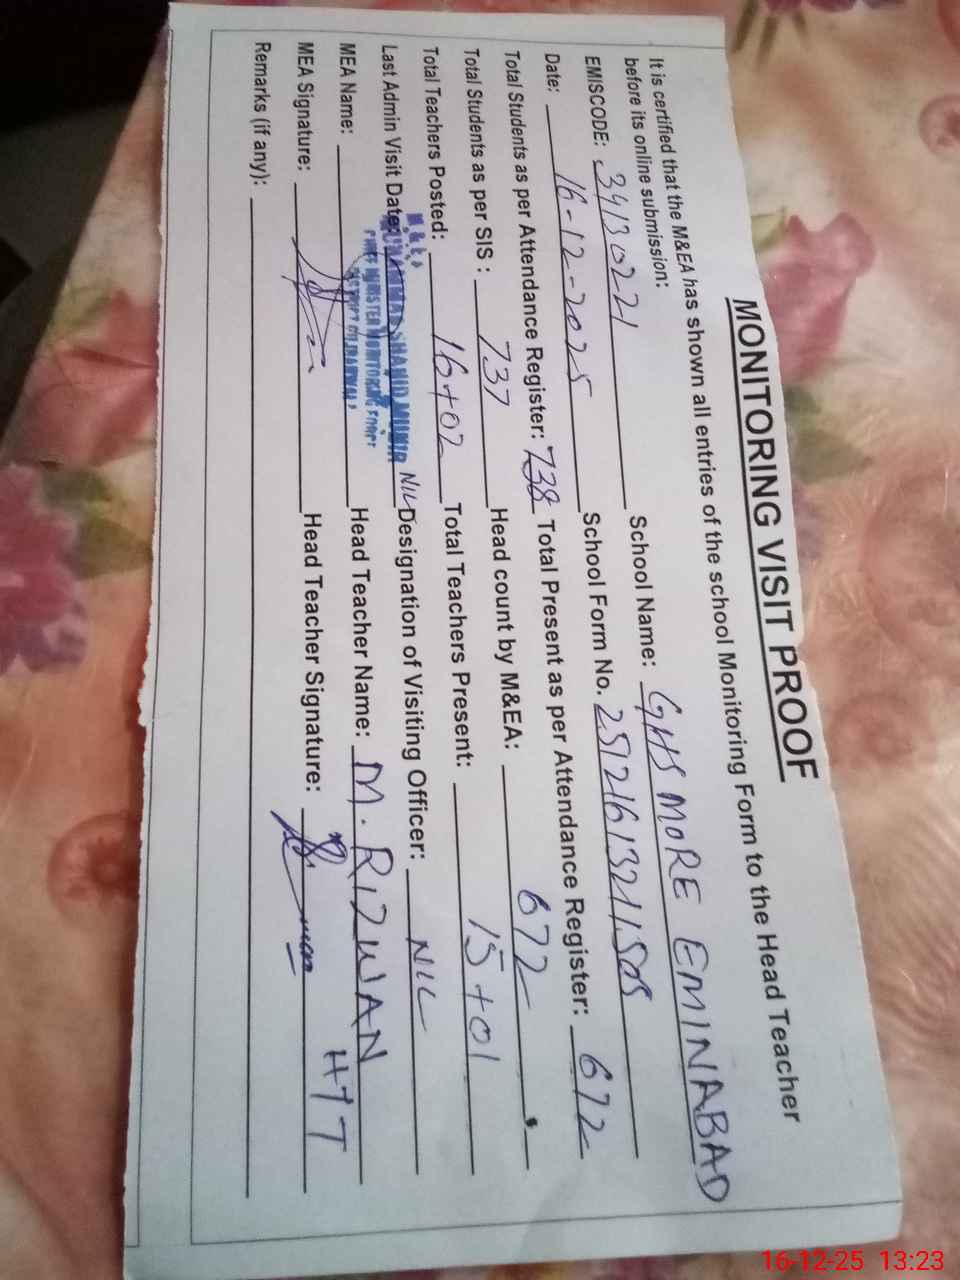 MONITORING VISIT PROOF
It is certified that the M&EA has shown all entries of the school Monitoring Form to the Head Teacher
before its online submission:
EMISCODE: 34130221 School Name: GHS MORE EMINABAD
Date: 16-12-2025 School Form No.
Total Students as per Attendance Register: 738 Total Present as per Attendance Register: 672
Total Students as per SIS : 737 Head count by M&EA: 672
Total Teachers Posted: 16+02 Total Teachers Present: 15+01
Last Admin Visit Date: NIL Designation of Visiting Officer: NIL
MEA Name: Head Teacher Name: M. RIZWAN
MEA Signature: Head Teacher Signature: HTT
Remarks (if any):
M & EA
MUHAMMAD SHAHID MUNIR
CHIEF MINISTER MONITORING FORCE
16-12-25 13:23